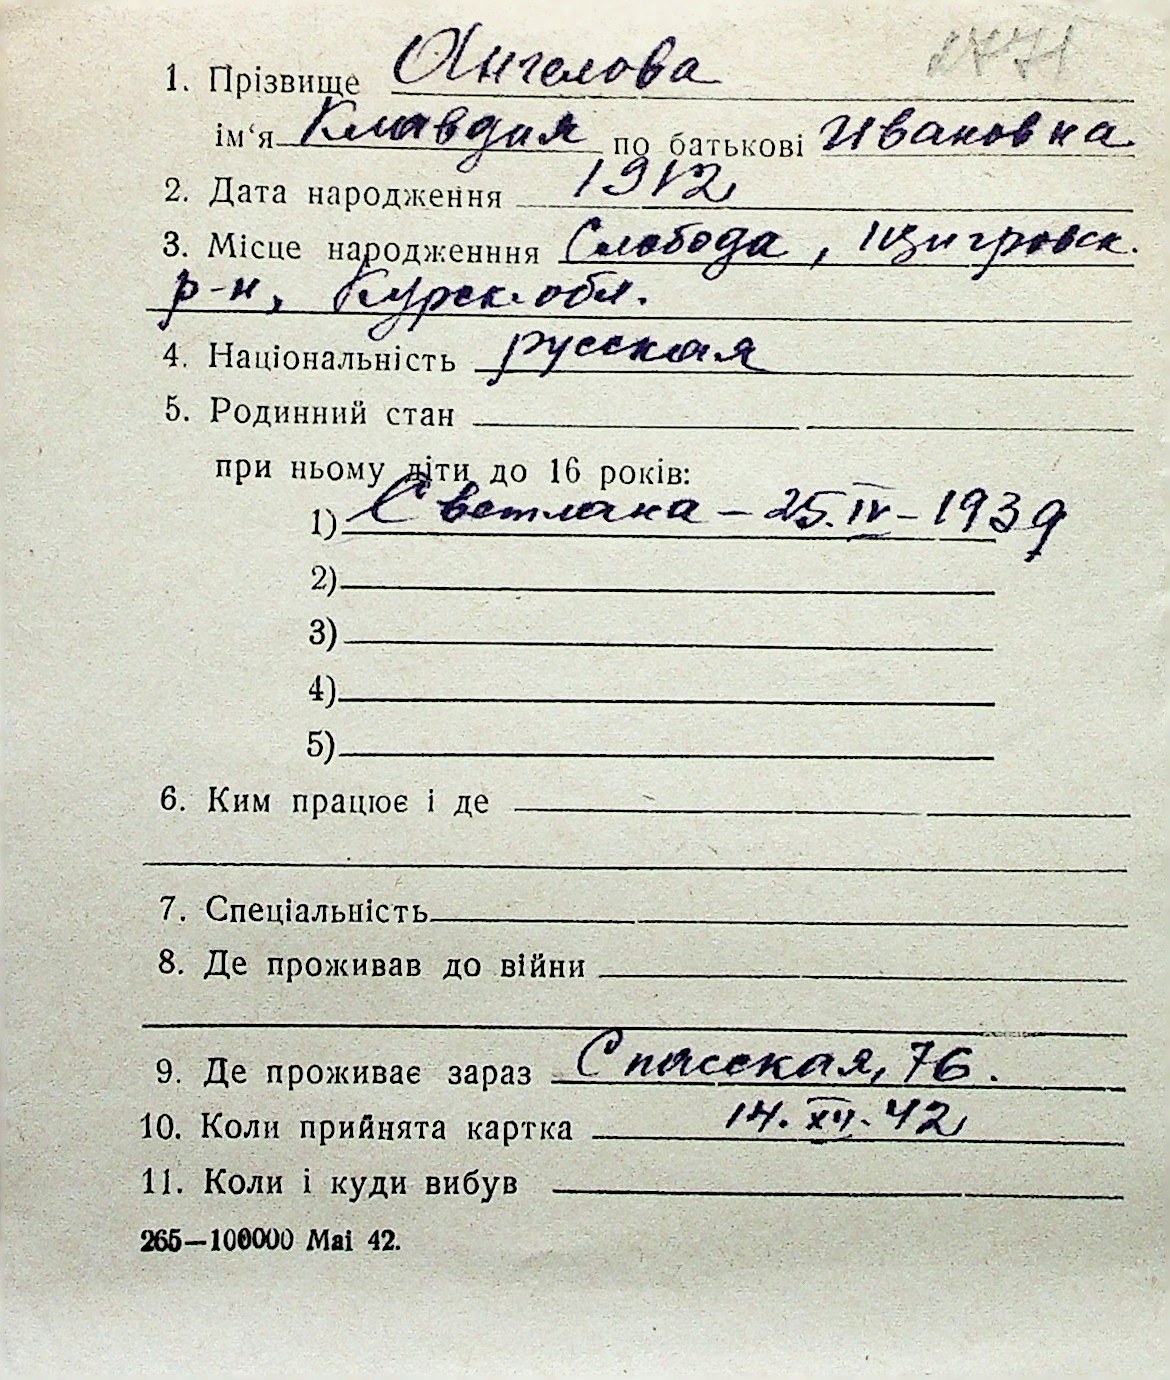 2771
1. Прізвище Ангелова
ім‘я Клавдия по батькові Ивановна
2. Дата народження 1912
3. Місце народженння Слобода, Щигровск.
р-н, Курск. обл.
4. Національність русская
5. Родинний стан
при ньому діти до 16 років:
1) Светлана – 25.IV – 1939
2)
3)
4)
5)
6. Ким працює і де
7. Спеціальність
8. Де проживав до війни
9. Де проживає зараз Спасская, 76.
10. Коли прийнята картка 14. XII. 42
11. Коли і куди вибув
265—100000 Mai 42.